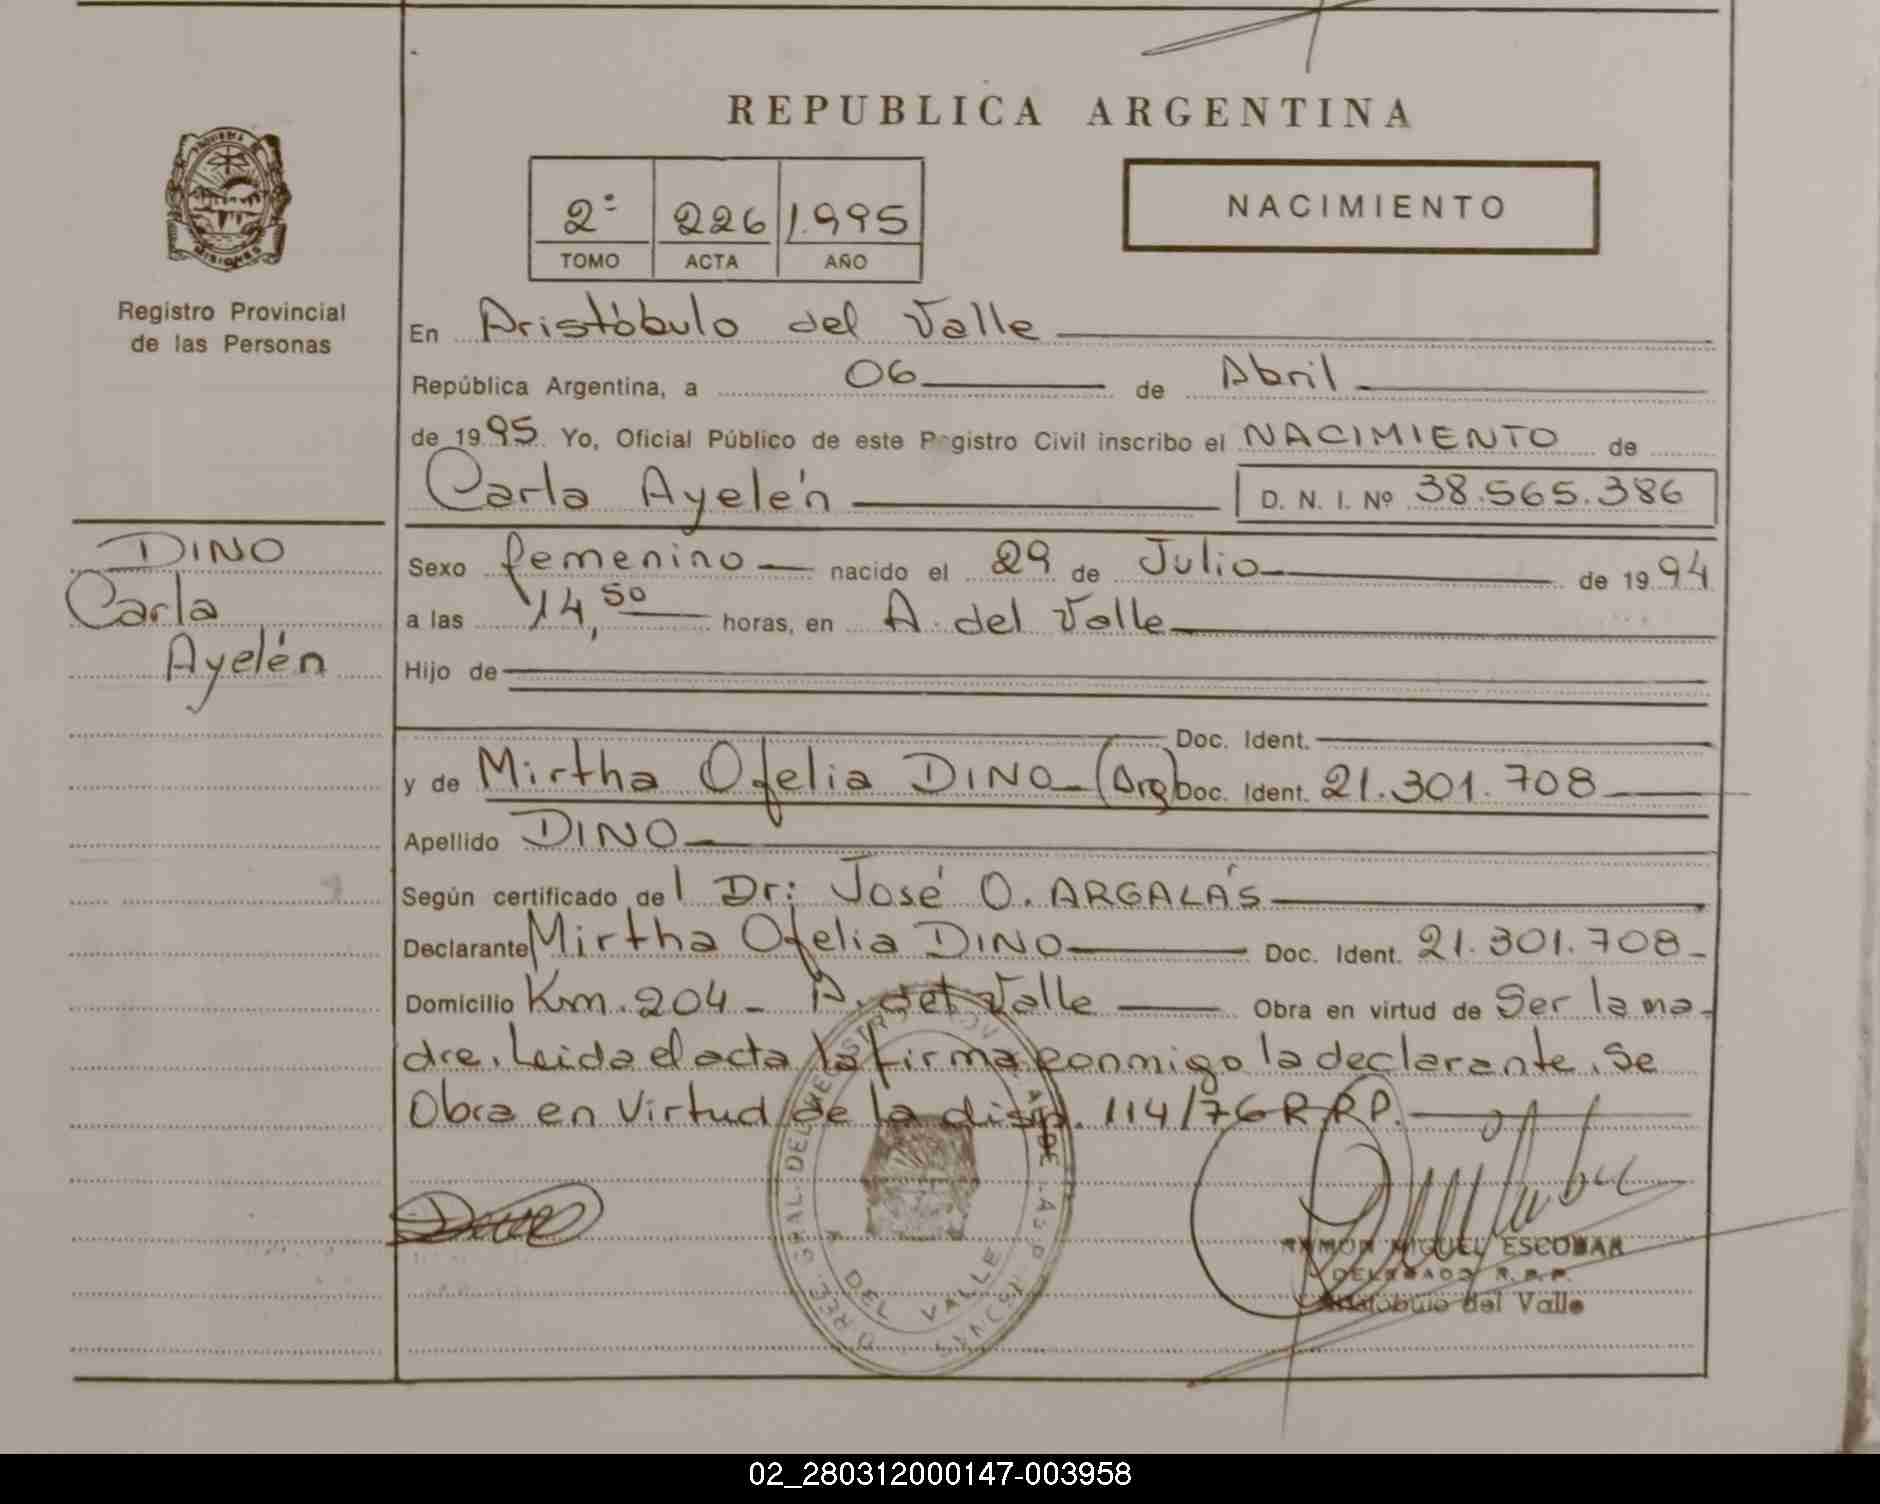 REPUBLICA ARGENTINA
PROVINCIA DE
MISIONES
Registro Provincial
de las Personas
2º 226 1.995
TOMO ACTA AÑO
NACIMIENTO
En Aristóbulo del Valle
República Argentina, a 06 de Abril
de 1995 Yo, Oficial Público de este Registro Civil inscribo el NACIMIENTO de
Carla Ayelén D. N. I. Nº 38.565.386
DINO
Carla
Ayelén
Sexo femenino nacido el 29 de Julio de 1994
a las 14,50 horas, en A. del Valle
Hijo de
Doc. Ident.
y de Mirtha Ofelia DINO (Arg) Doc. Ident. 21.301.708
Apellido DINO
Según certificado del Dr: José O. ARGALÁS
Declarante Mirtha Ofelia DINO Doc. Ident. 21.301.708-
Domicilio Km. 204 - A. del Valle Obra en virtud de Ser la ma-
dre. Leida el acta la firma conmigo la declarante. Se
Obra en virtud de la disp. 114/76 R.R.P.
DEL VALLE
RAMON MIGUEL ESCOBAR
DELEGADO R. P. P.
Aristóbulo del Valle
02_280312000147-003958